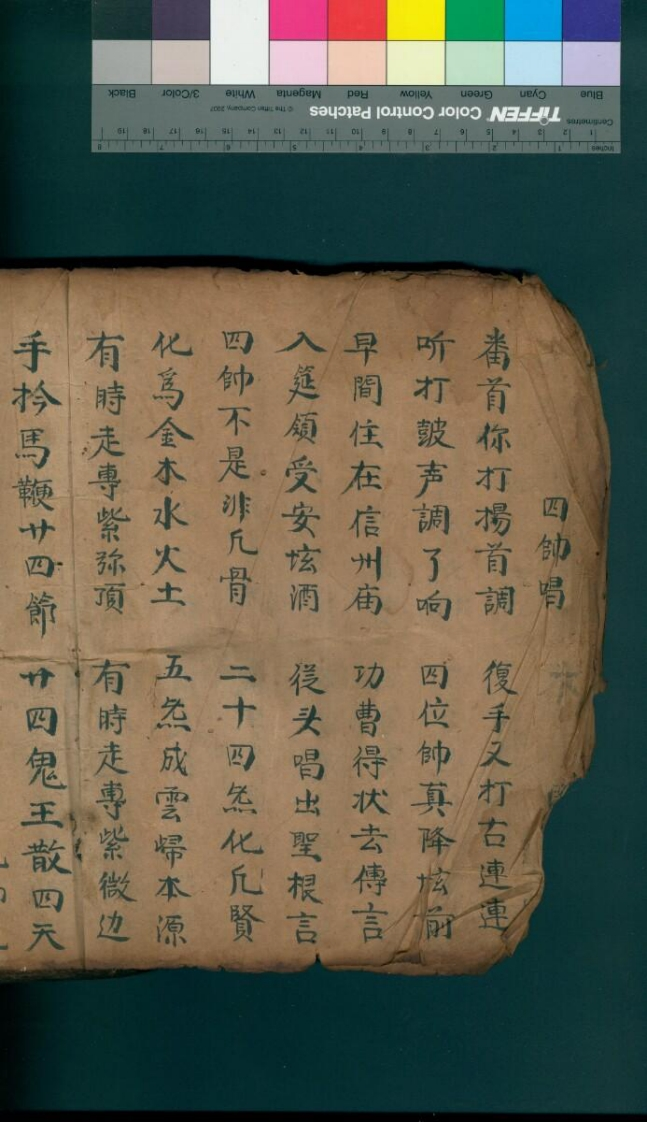 四帥唱
番首你打揚首調 復手又打右連連
听打皷声調了响 四位帥真降垓前
早間住在信州庙 功曹得状去傳言
入筵領受安垓酒 從头唱出聖根言
四帥不是非凡骨 二十四炁化凡賢
化爲金木水火土 五炁成雲歸本源
有時走專紫弥頂 有時走專紫微边
手拎馬鞭廿四節 廿四鬼王散四天
Inches 1 2 3 4 5 6 7 8
Centimetres 1 2 3 4 5 6 7 8 9 10 11 12 13 14 15 16 17 18 19
TIFFEN Color Control Patches © The Tiffen Company, 2007
Blue Cyan Green Yellow Red Magenta White 3/Color Black